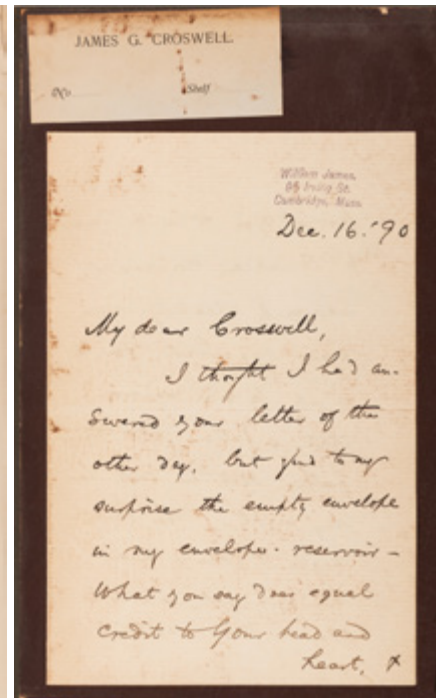 JAMES G. CROSWELL.
No Shelf
William James
95 Irving St.
Cambridge, Mass.
Dec. 16. '90
My dear Croswell,
I thought I had an-
swered your letter of the
other day, but find to my
surprise the empty envelope
in my envelope-reservoir –
What you say does equal
credit to your head and
heart, &